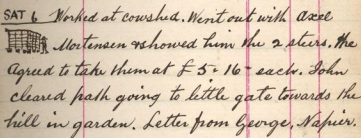 SAT 6 Worked at cowshed. Went out with Axel
Mortensen & showed him the 2 steers. He
agreed to take them at £5-16- each. John
cleared path going to little gate towards the
hill in garden. Letter from George, Napier.